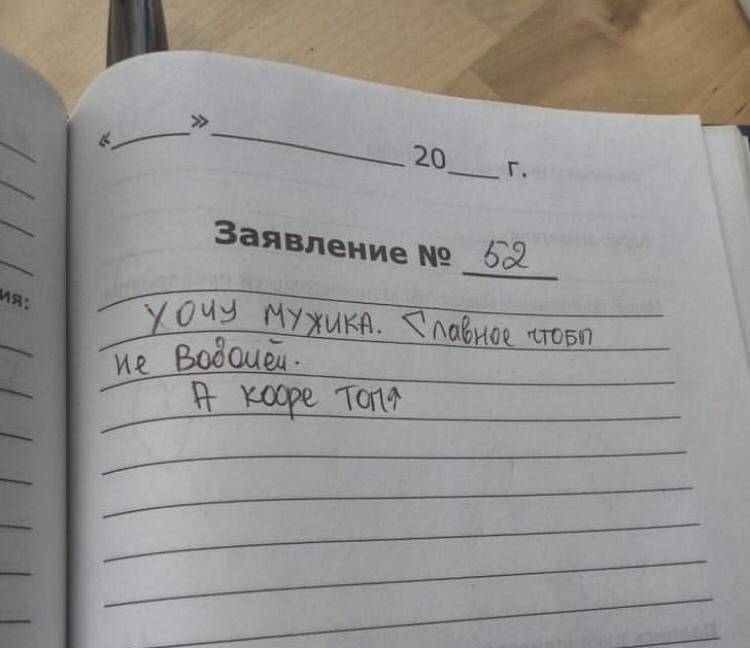 « » 20 г.
Заявление № 52
ия:
Хочу мужика. Главное чтобы
не Водолей.
А кофе топ↑